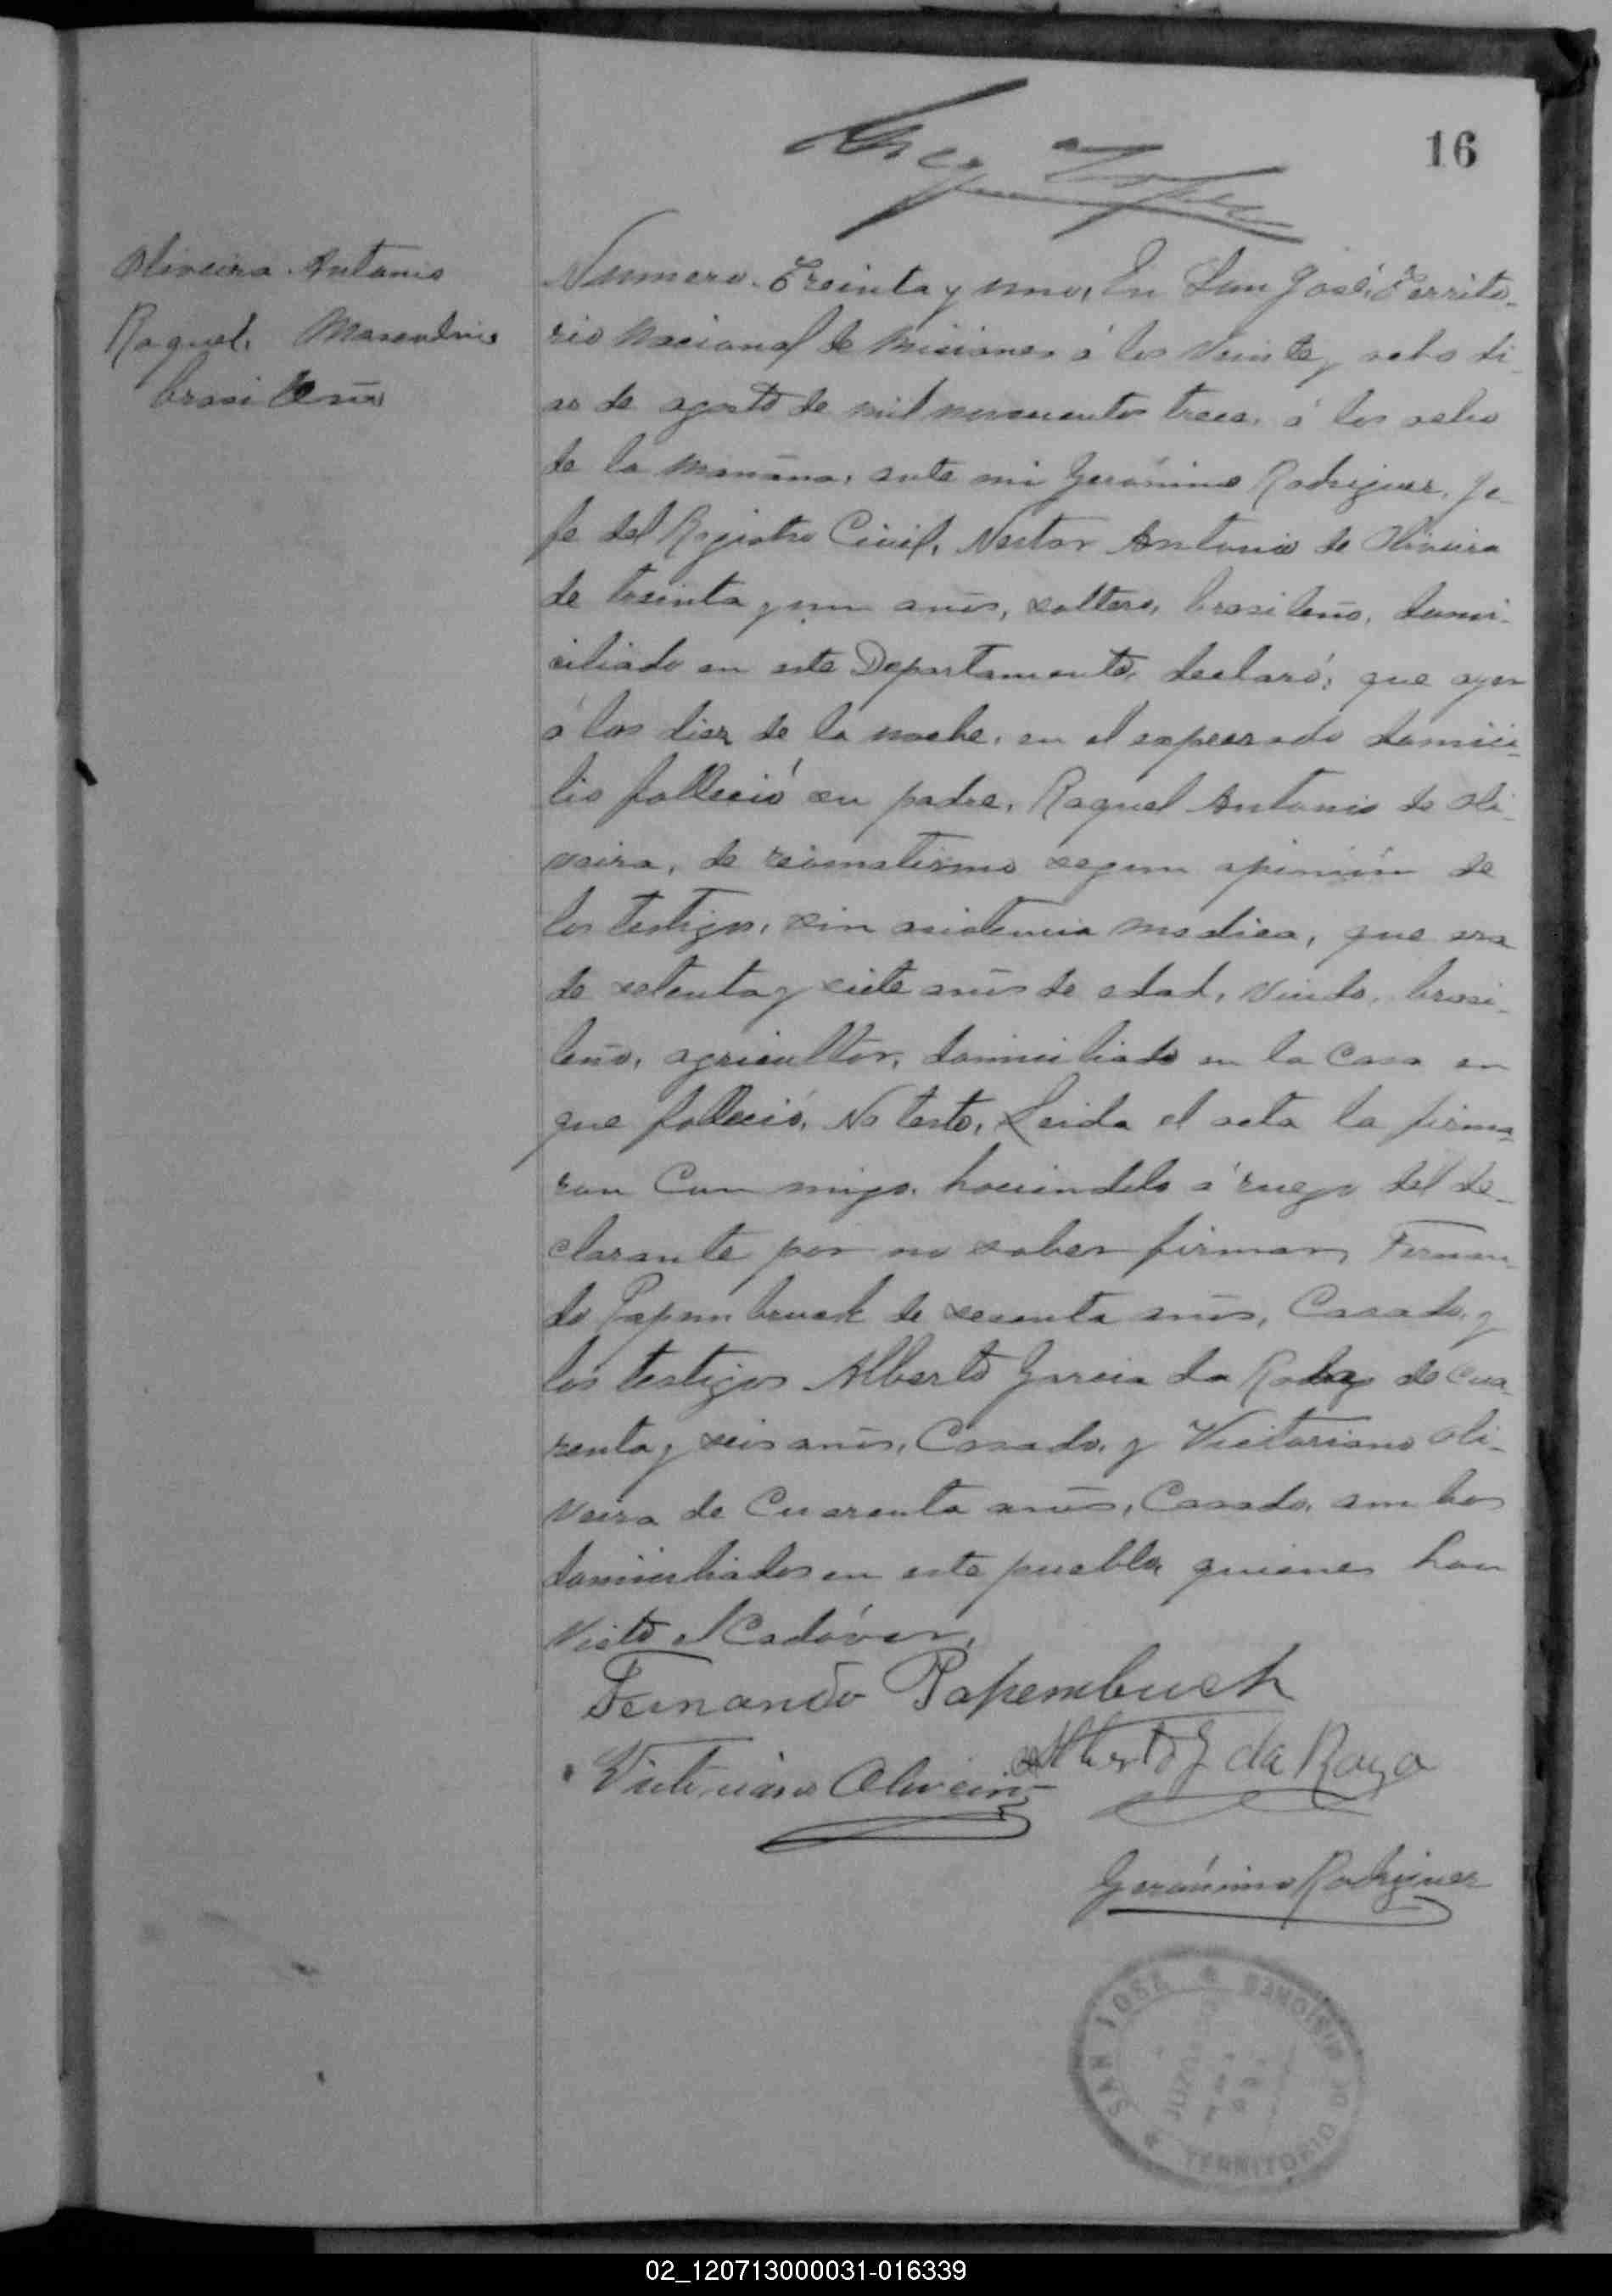 16
Oliveira Antonio
Raquel. Masculino
brasileño
Numero. Treinta y uno, En San José, Territo-
rio Nacional de Misiones á los veinte y ocho di-
as de agosto de mil novecientos trece, á las ocho
de la mañana, ante mi Gerónimo Rodriguez, Je-
fe del Registro Civil, Nestor Antonio de Oliveira
de treinta y un años, soltero, brasileño, domi-
ciliado en este Departamento, declaró: que ayer
á las diez de la noche, en el expresado domici-
lio falleció su padre, Raquel Antonio de Oli-
veira, de reomatismo segun opinión de
los testigos, sin asistencia medica, que era
de setenta y siete años de edad, viudo, brasi-
leño, agricultor, domiciliado en la casa en
que falleció. No testó. Leida el acta la firma-
ron Con migo, haciendolo á ruego del de-
clarante por no saber firmar, Fernan-
do Papembruck de sesenta años, Casado, y
los testigos Alberto Garcia da Roza de cua-
renta y seis años, Casado, y Victoriano Oli-
veira de Cuarenta años, Casado, ambos
domiciliados en este pueblo, quienes han
visto el Cadáver.
Fernando Papembuch
Alberto G da Roza
Victoriano Oliveira
Gerónimo Rodriguez
SAN JOSE
TERRITORIO DE MISIONES
02_120713000031-016339